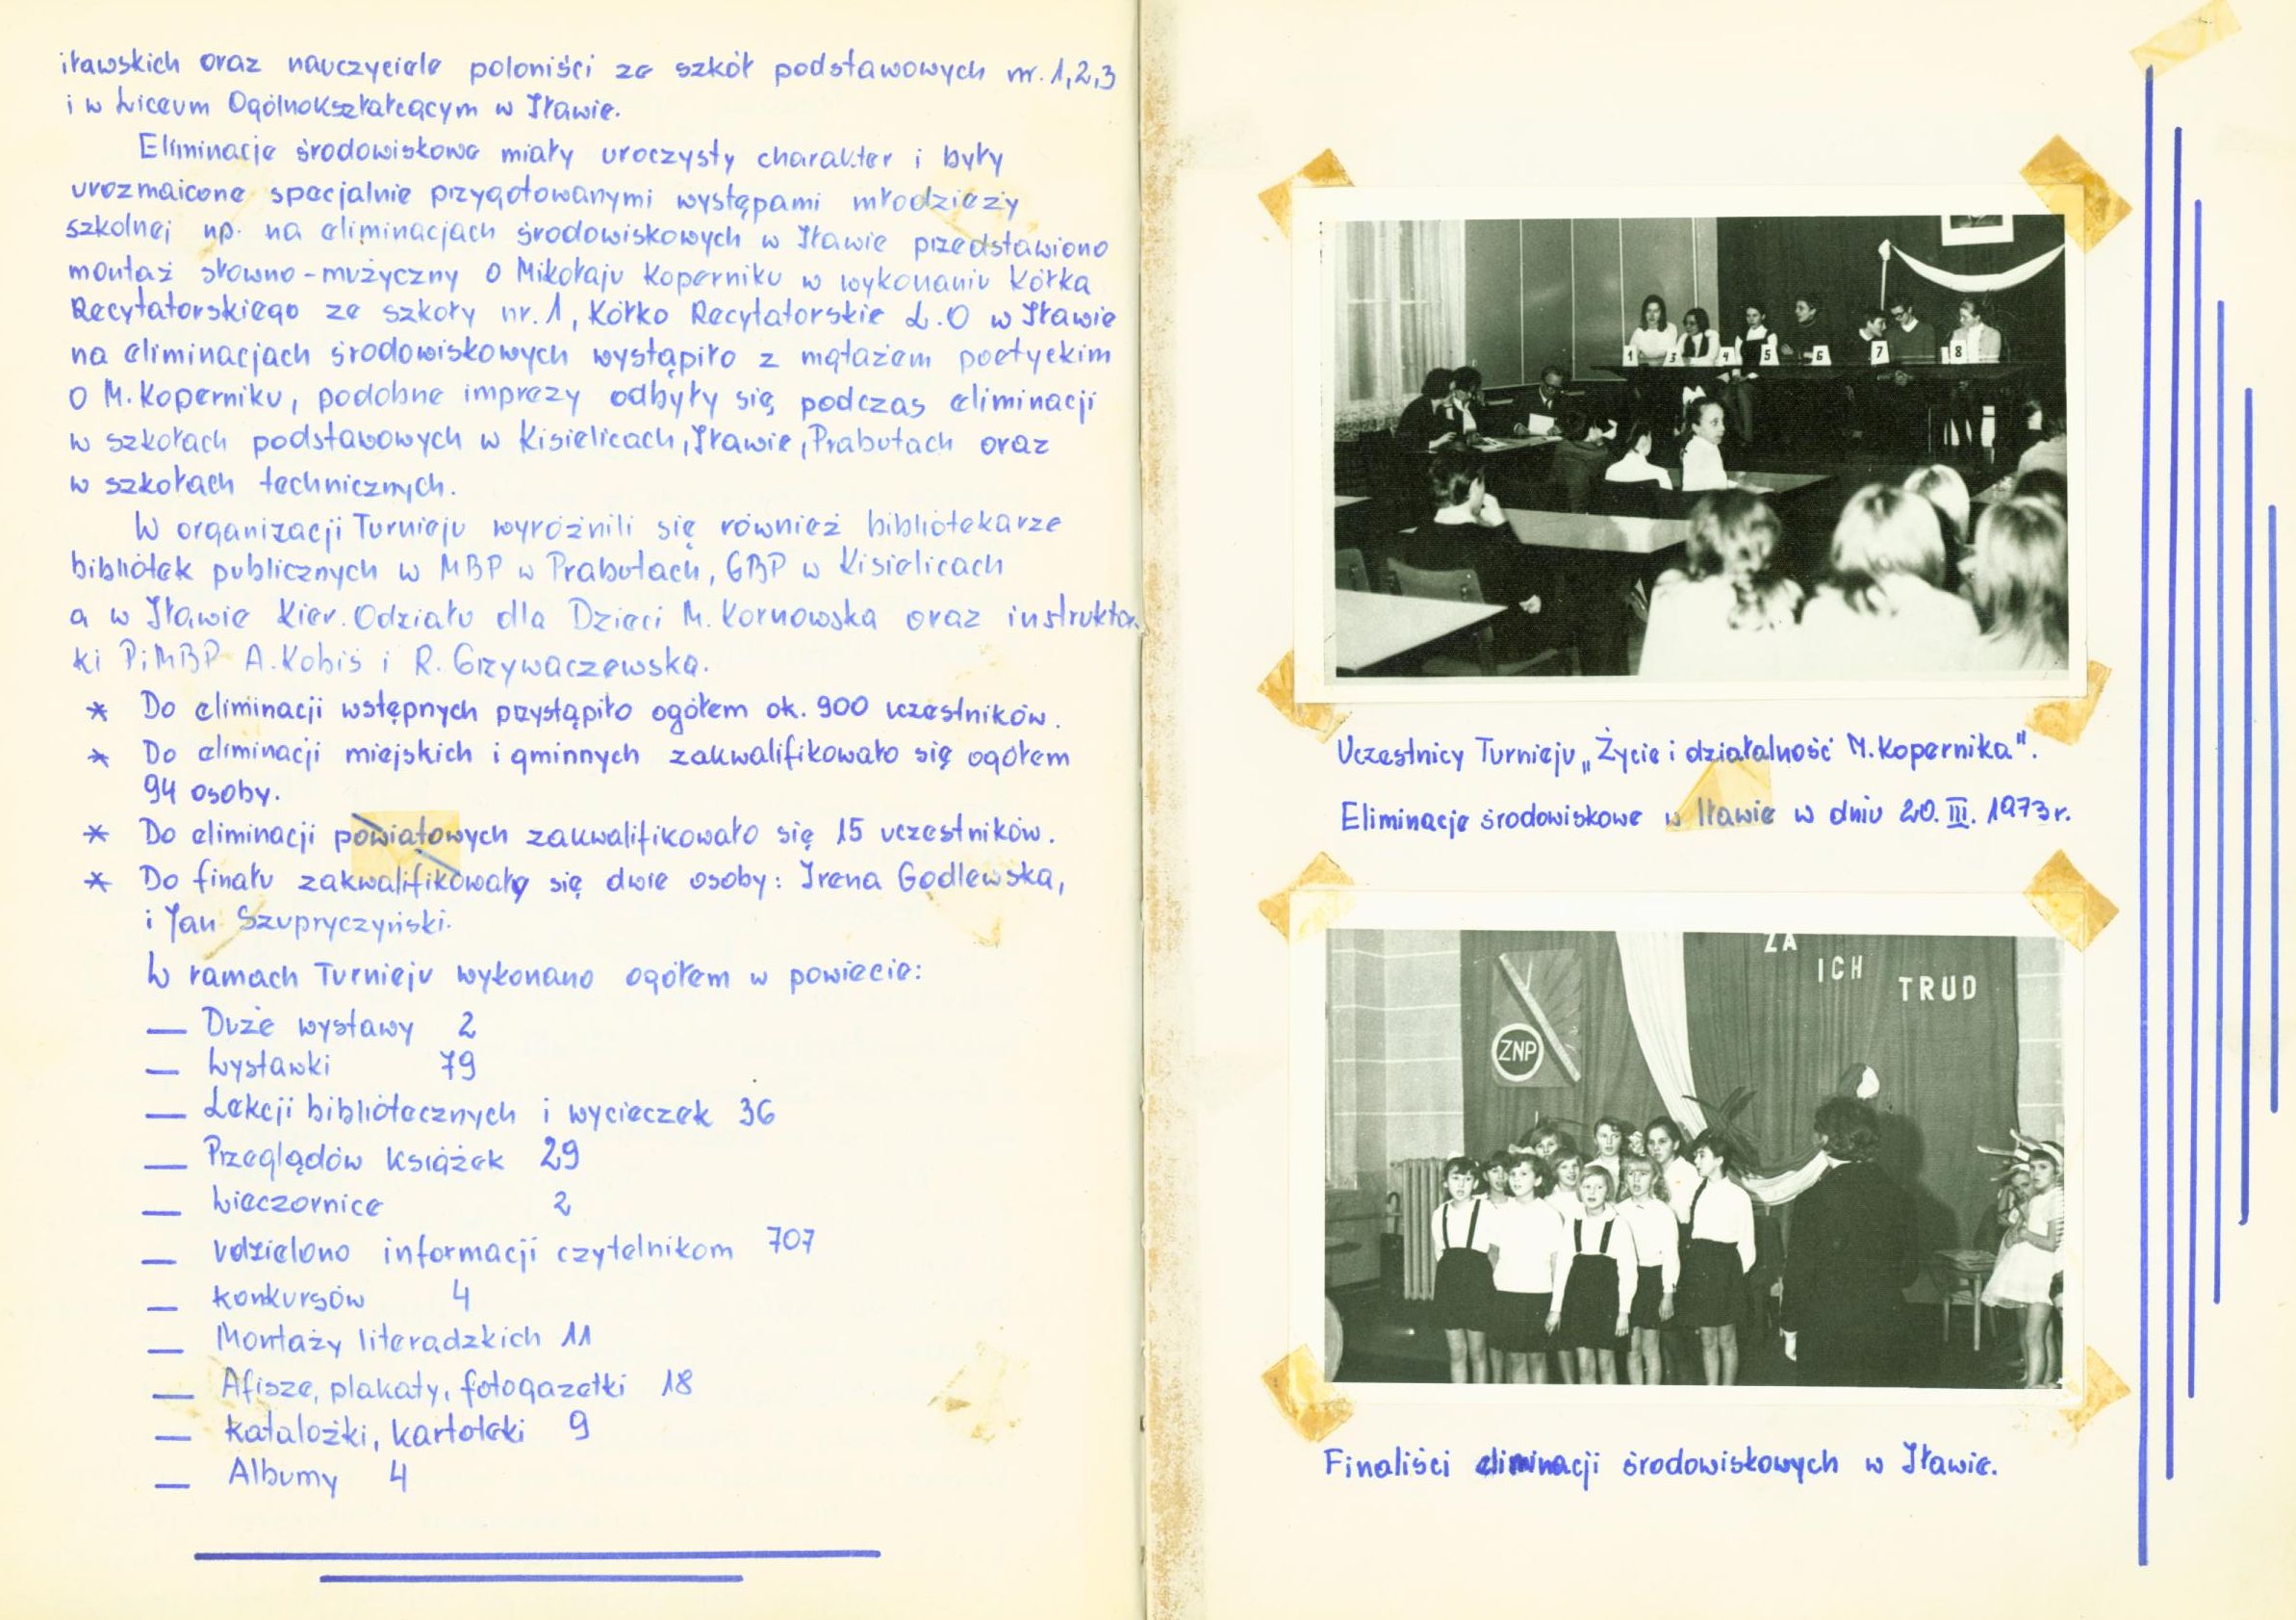 iławskich oraz nauczyciele poloniści ze szkół podstawowych nr. 1,2,3
i w Liceum Ogólnokształcącym w Iławie.
Eliminacje środowiskowe miały uroczysty charakter i były
urozmaicone specjalnie przygotowanymi występami młodzieży
szkolnej np. na eliminacjach środowiskowych w Iławie przedstawiono
montaż słowno-mużyczny o Mikołaju Koperniku w wykonaniu Kółka
Recytatorskiego ze szkoły nr. 1, Kółko Recytatorskie L.O w Iławie
na eliminacjach środowiskowych wystąpiło z mątażem poetyckim
o M. Koperniku, podobne imprezy odbyły się podczas eliminacji
w szkołach podstawowych w Kisielicach, Iławie, Prabutach oraz
w szkołach technicznych.
W organizacji Turnieju wyróżnili się również bibliotekarze
bibliotek publicznych w MBP w Prabutach, GBP w Kisielicach
a w Iławie Kier. Odziału dla Dzieci M. Kornowska oraz instruktor
ki PiMBP A. Kobiś i R. Grzywaczewska.
* Do eliminacji wstępnych przystąpiło ogółem ok. 900 uczestników.
* Do eliminacji miejskich i gminnych zakwalifikowało się ogółem
94 osoby.
* Do eliminacji powiatowych zakwalifikowało się 15 uczestników.
* Do finału zakwalifikowały się dwie osoby: Irena Godlewska,
i Jan Szupryczyński.
W ramach Turnieju wykonano ogółem w powiecie:
— Duże wystawy 2
— Wystawki 79
— Lekcji bibliotecznych i wycieczek 36
— Przeglądów książek 29
— Wieczornice 2
— udzielono informacji czytelnikom 707
— konkursów 4
— Montaży literadzkich 11
— Afisze, plakaty, fotogazetki 18
— katalożki, kartoteki 9
— Albumy 4
1 3 4 5 6 7 8
Uczestnicy Turnieju „Życie i działalność M. Kopernika".
Eliminacje środowiskowe w Iławie w dniu 20. III. 1973 r.
ZA
ICH
TRUD
ZNP
Finaliści eliminacji środowiskowych w Iławie.